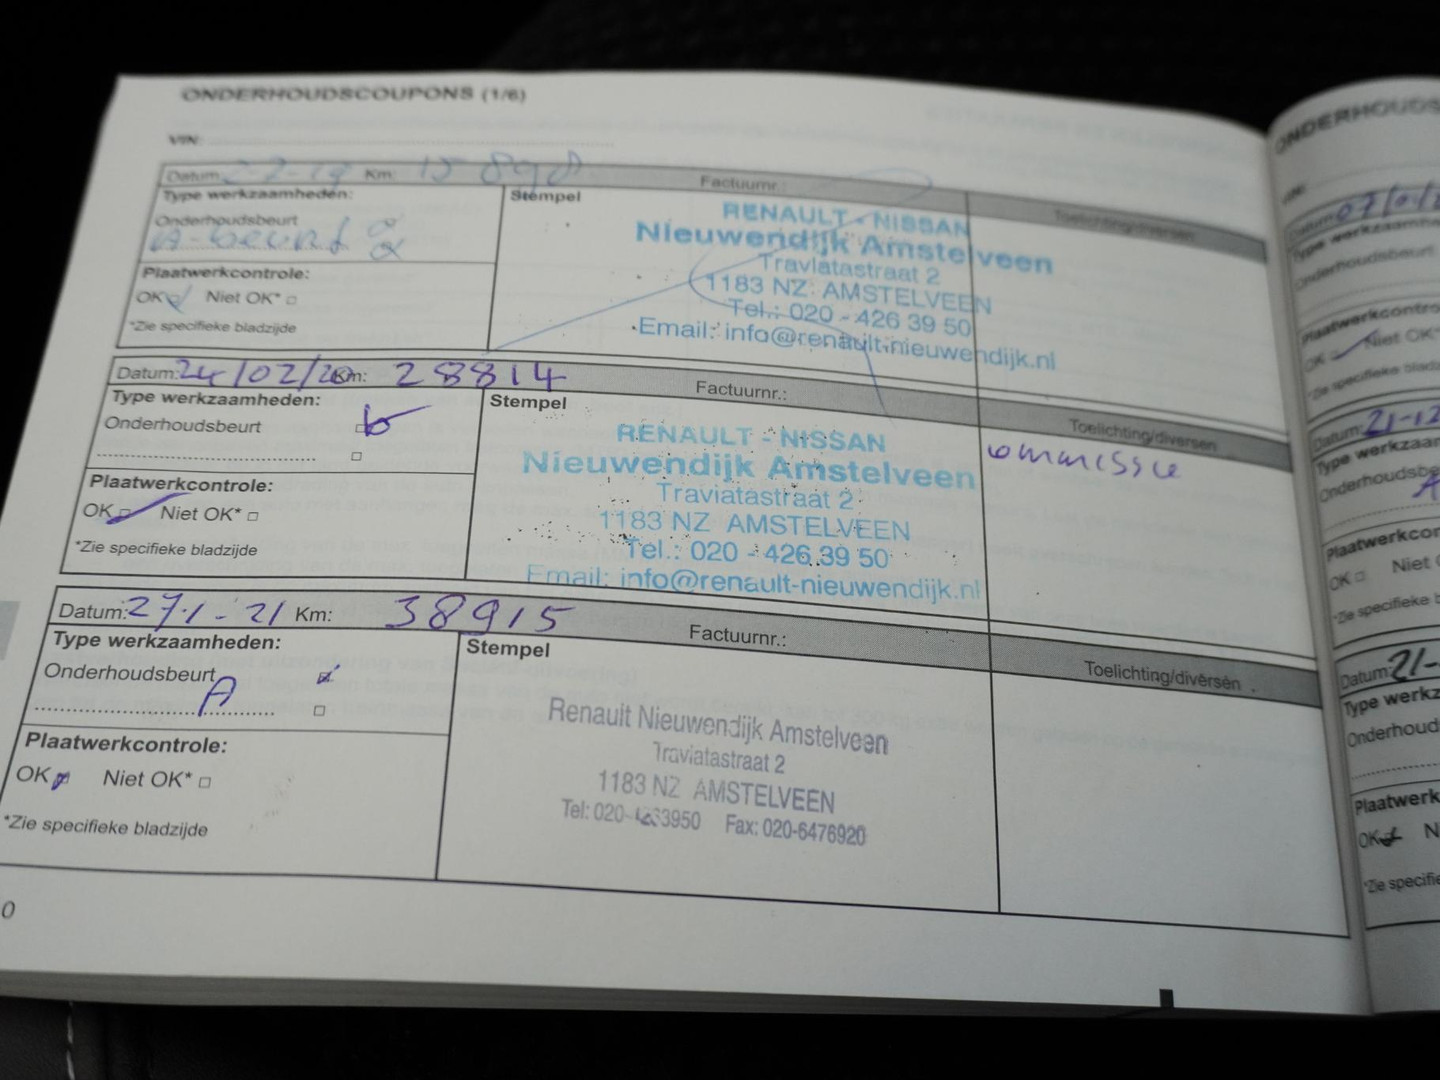 ONDERHOUDSCOUPONS (1/6)
VIN:
Datum: Km: 15 898 Factuurnr.:
Type werkzaamheden: Stempel Toelichting/diversen
Onderhoudsbeurt
A-beurt
Plaatwerkcontrole:
OK Niet OK*
*Zie specifieke bladzijde
RENAULT - NISSAN
Nieuwendijk Amstelveen
Traviatastraat 2
1183 NZ AMSTELVEEN
Tel.: 020 - 426 39 50
Email: info@renault-nieuwendijk.nl
Datum: 24/02/20 Km: 28814 Factuurnr.:
Type werkzaamheden: Stempel Toelichting/diversen
Onderhoudsbeurt
Plaatwerkcontrole:
OK Niet OK*
*Zie specifieke bladzijde
RENAULT - NISSAN
Nieuwendijk Amstelveen
Traviatastraat 2
1183 NZ AMSTELVEEN
Tel.: 020 - 426 39 50
Email: info@renault-nieuwendijk.nl
Datum: 27-1-21 Km: 38915 Factuurnr.:
Type werkzaamheden: Stempel Toelichting/diversen
Onderhoudsbeurt
A
Plaatwerkcontrole:
OK Niet OK*
*Zie specifieke bladzijde
Renault Nieuwendijk Amstelveen
Traviatastraat 2
1183 NZ AMSTELVEEN
Tel: 020-4263950 Fax: 020-6476920
0
ONDERHOUDS
Datum: 07/01/
Type werkzaamhe
Onderhoudsbeurt
Plaatwerkcontro
OK Niet OK*
*Zie specifieke bladz
Datum: 21-12
Type werkzaam
Onderhoudsbe
A
Plaatwerkcor
OK Niet
*Zie specifieke b
Datum: 21-
Type werkz
Onderhoud
Plaatwerk
OK N
*Zie specifie